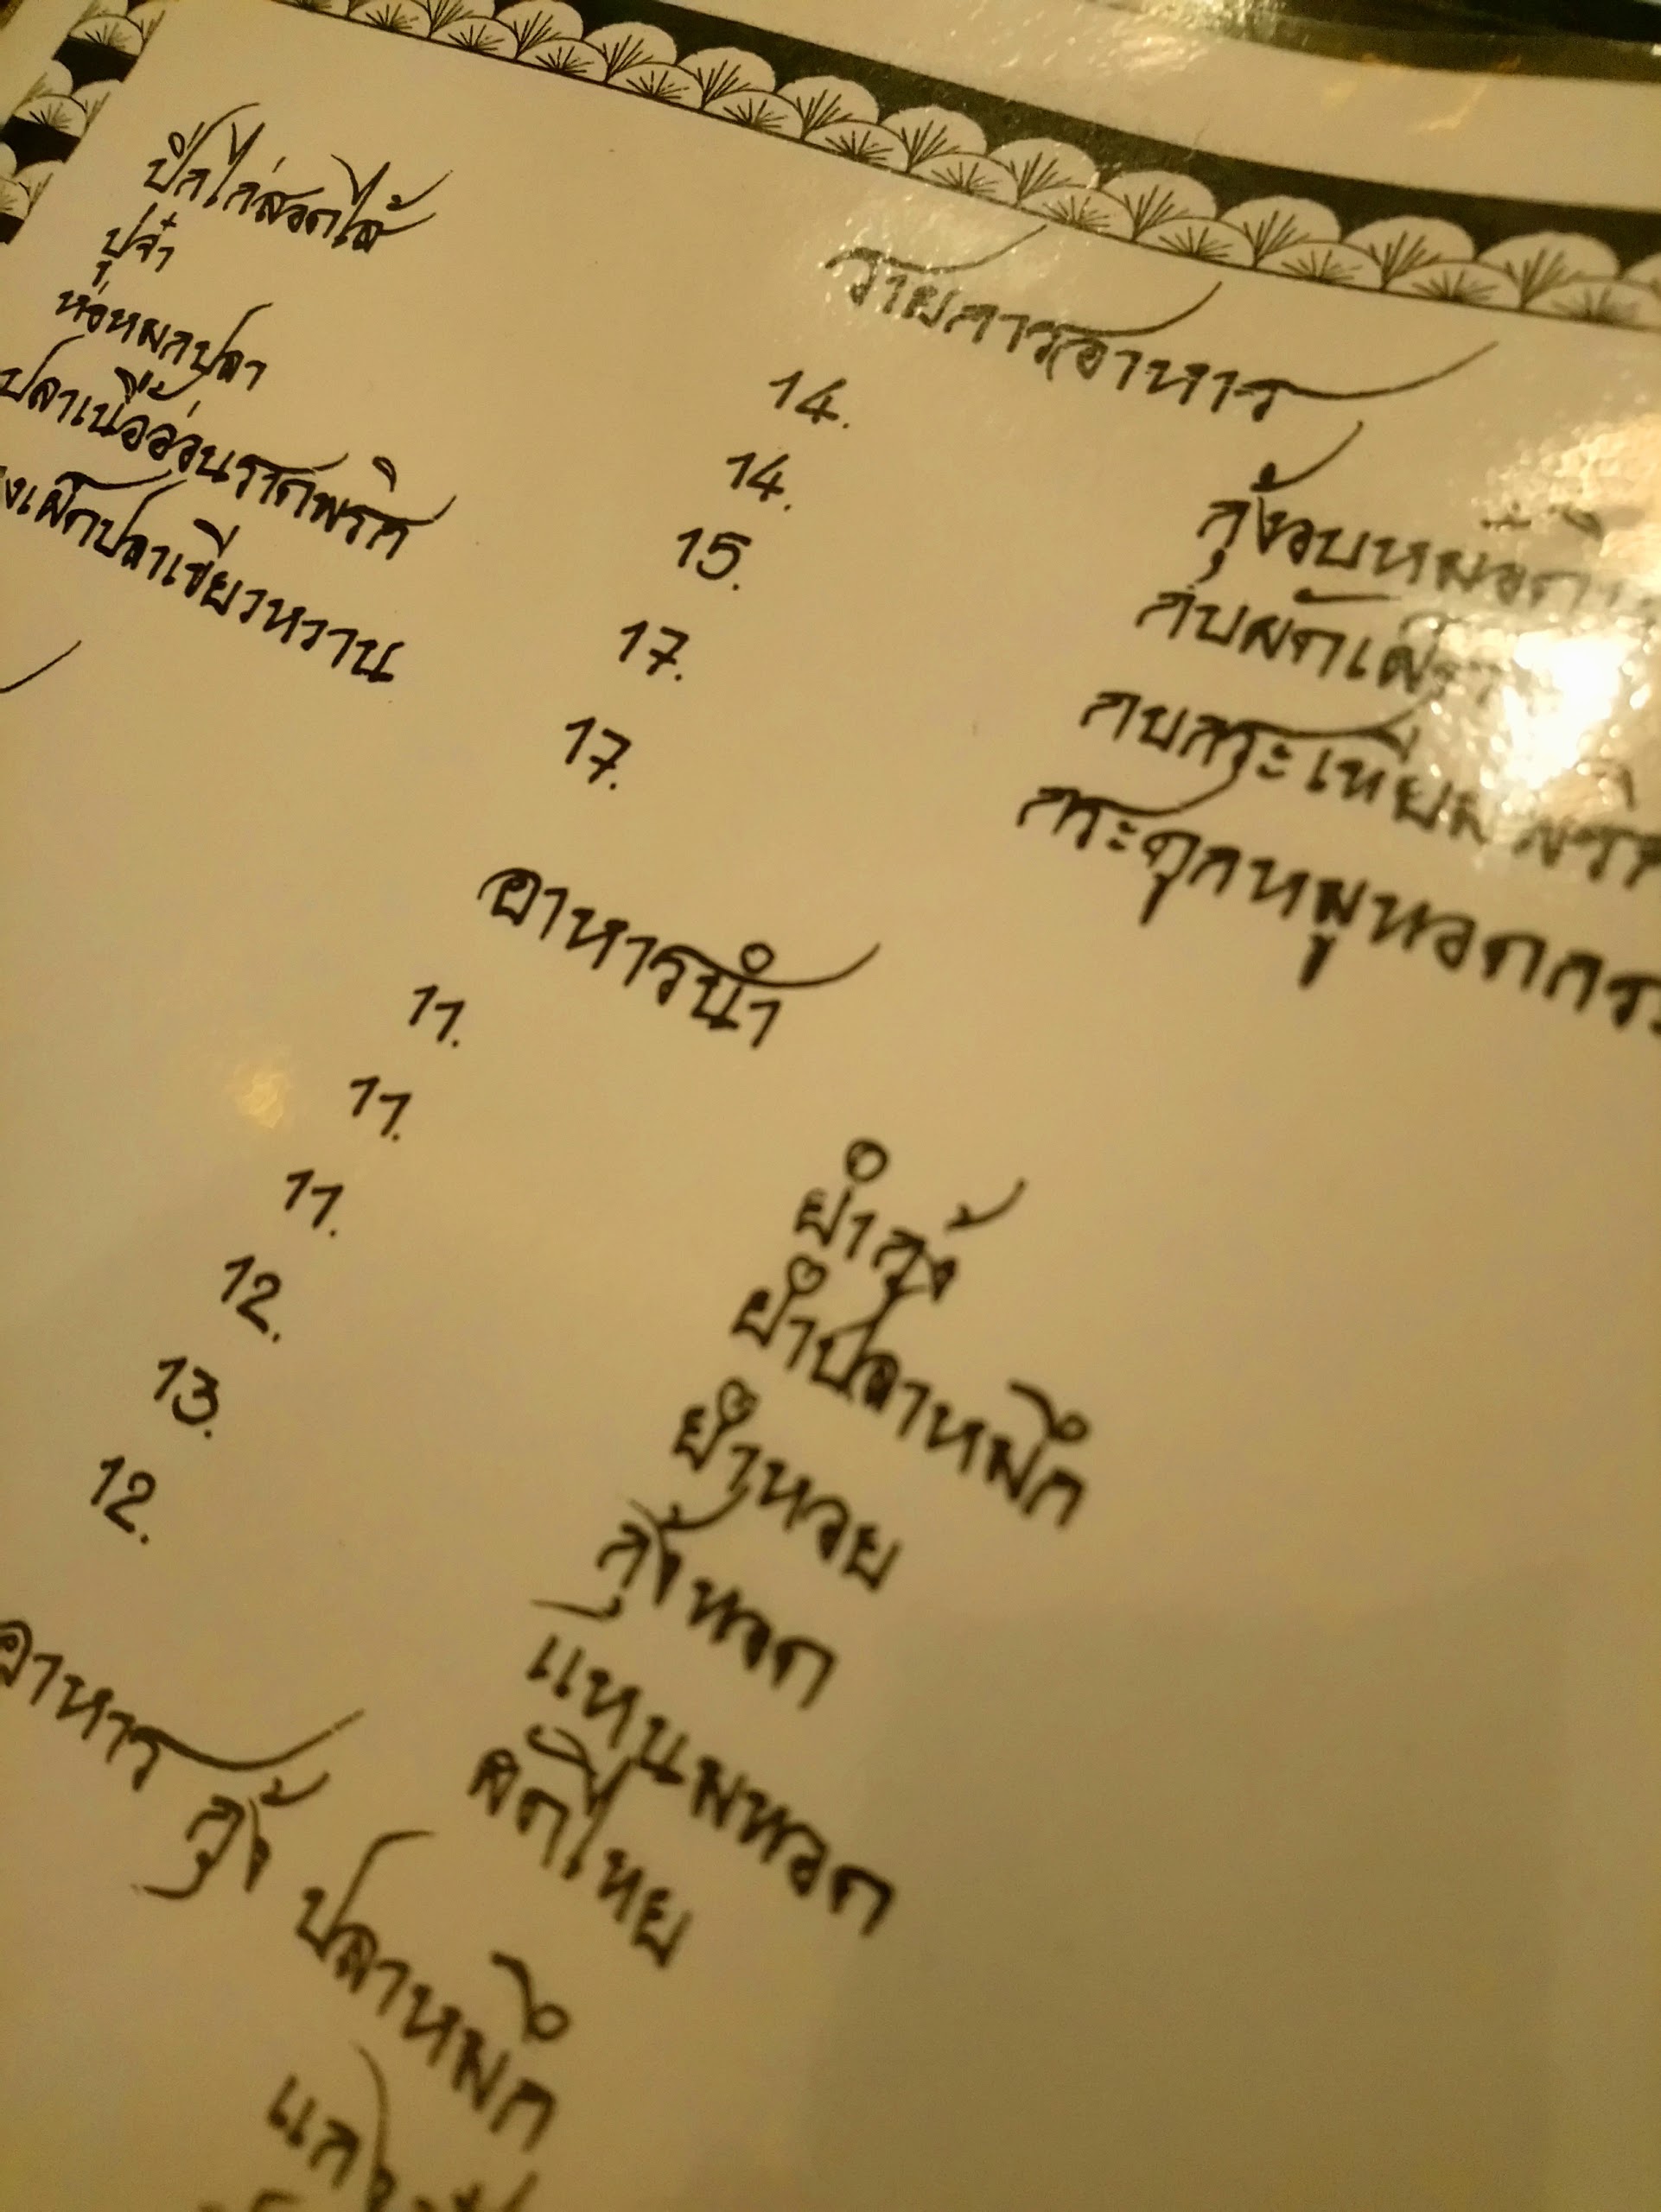 รายการอาหาร
ปีกไก่สอดไส้
14.
ปูจ๋า
14.
ห่อหมกปลา
15.
ปลาเนื้ออ่อนราดพริก
17.
ปลาเขียวหวาน
17.
กุ้งอบหม้อดิน
กบผัดเผ็ด
กบกระเทียม พริก
กระดูกหมูทอดกระ
อาหารนำ
11.
ยำกุ้ง
11.
ยำปลาหมึก
11.
ยำหอย
12.
กุ้งทอด
13.
แหนมทอด
12.
ผัดไทย
อาหาร กุ้ง ปลาหมึก